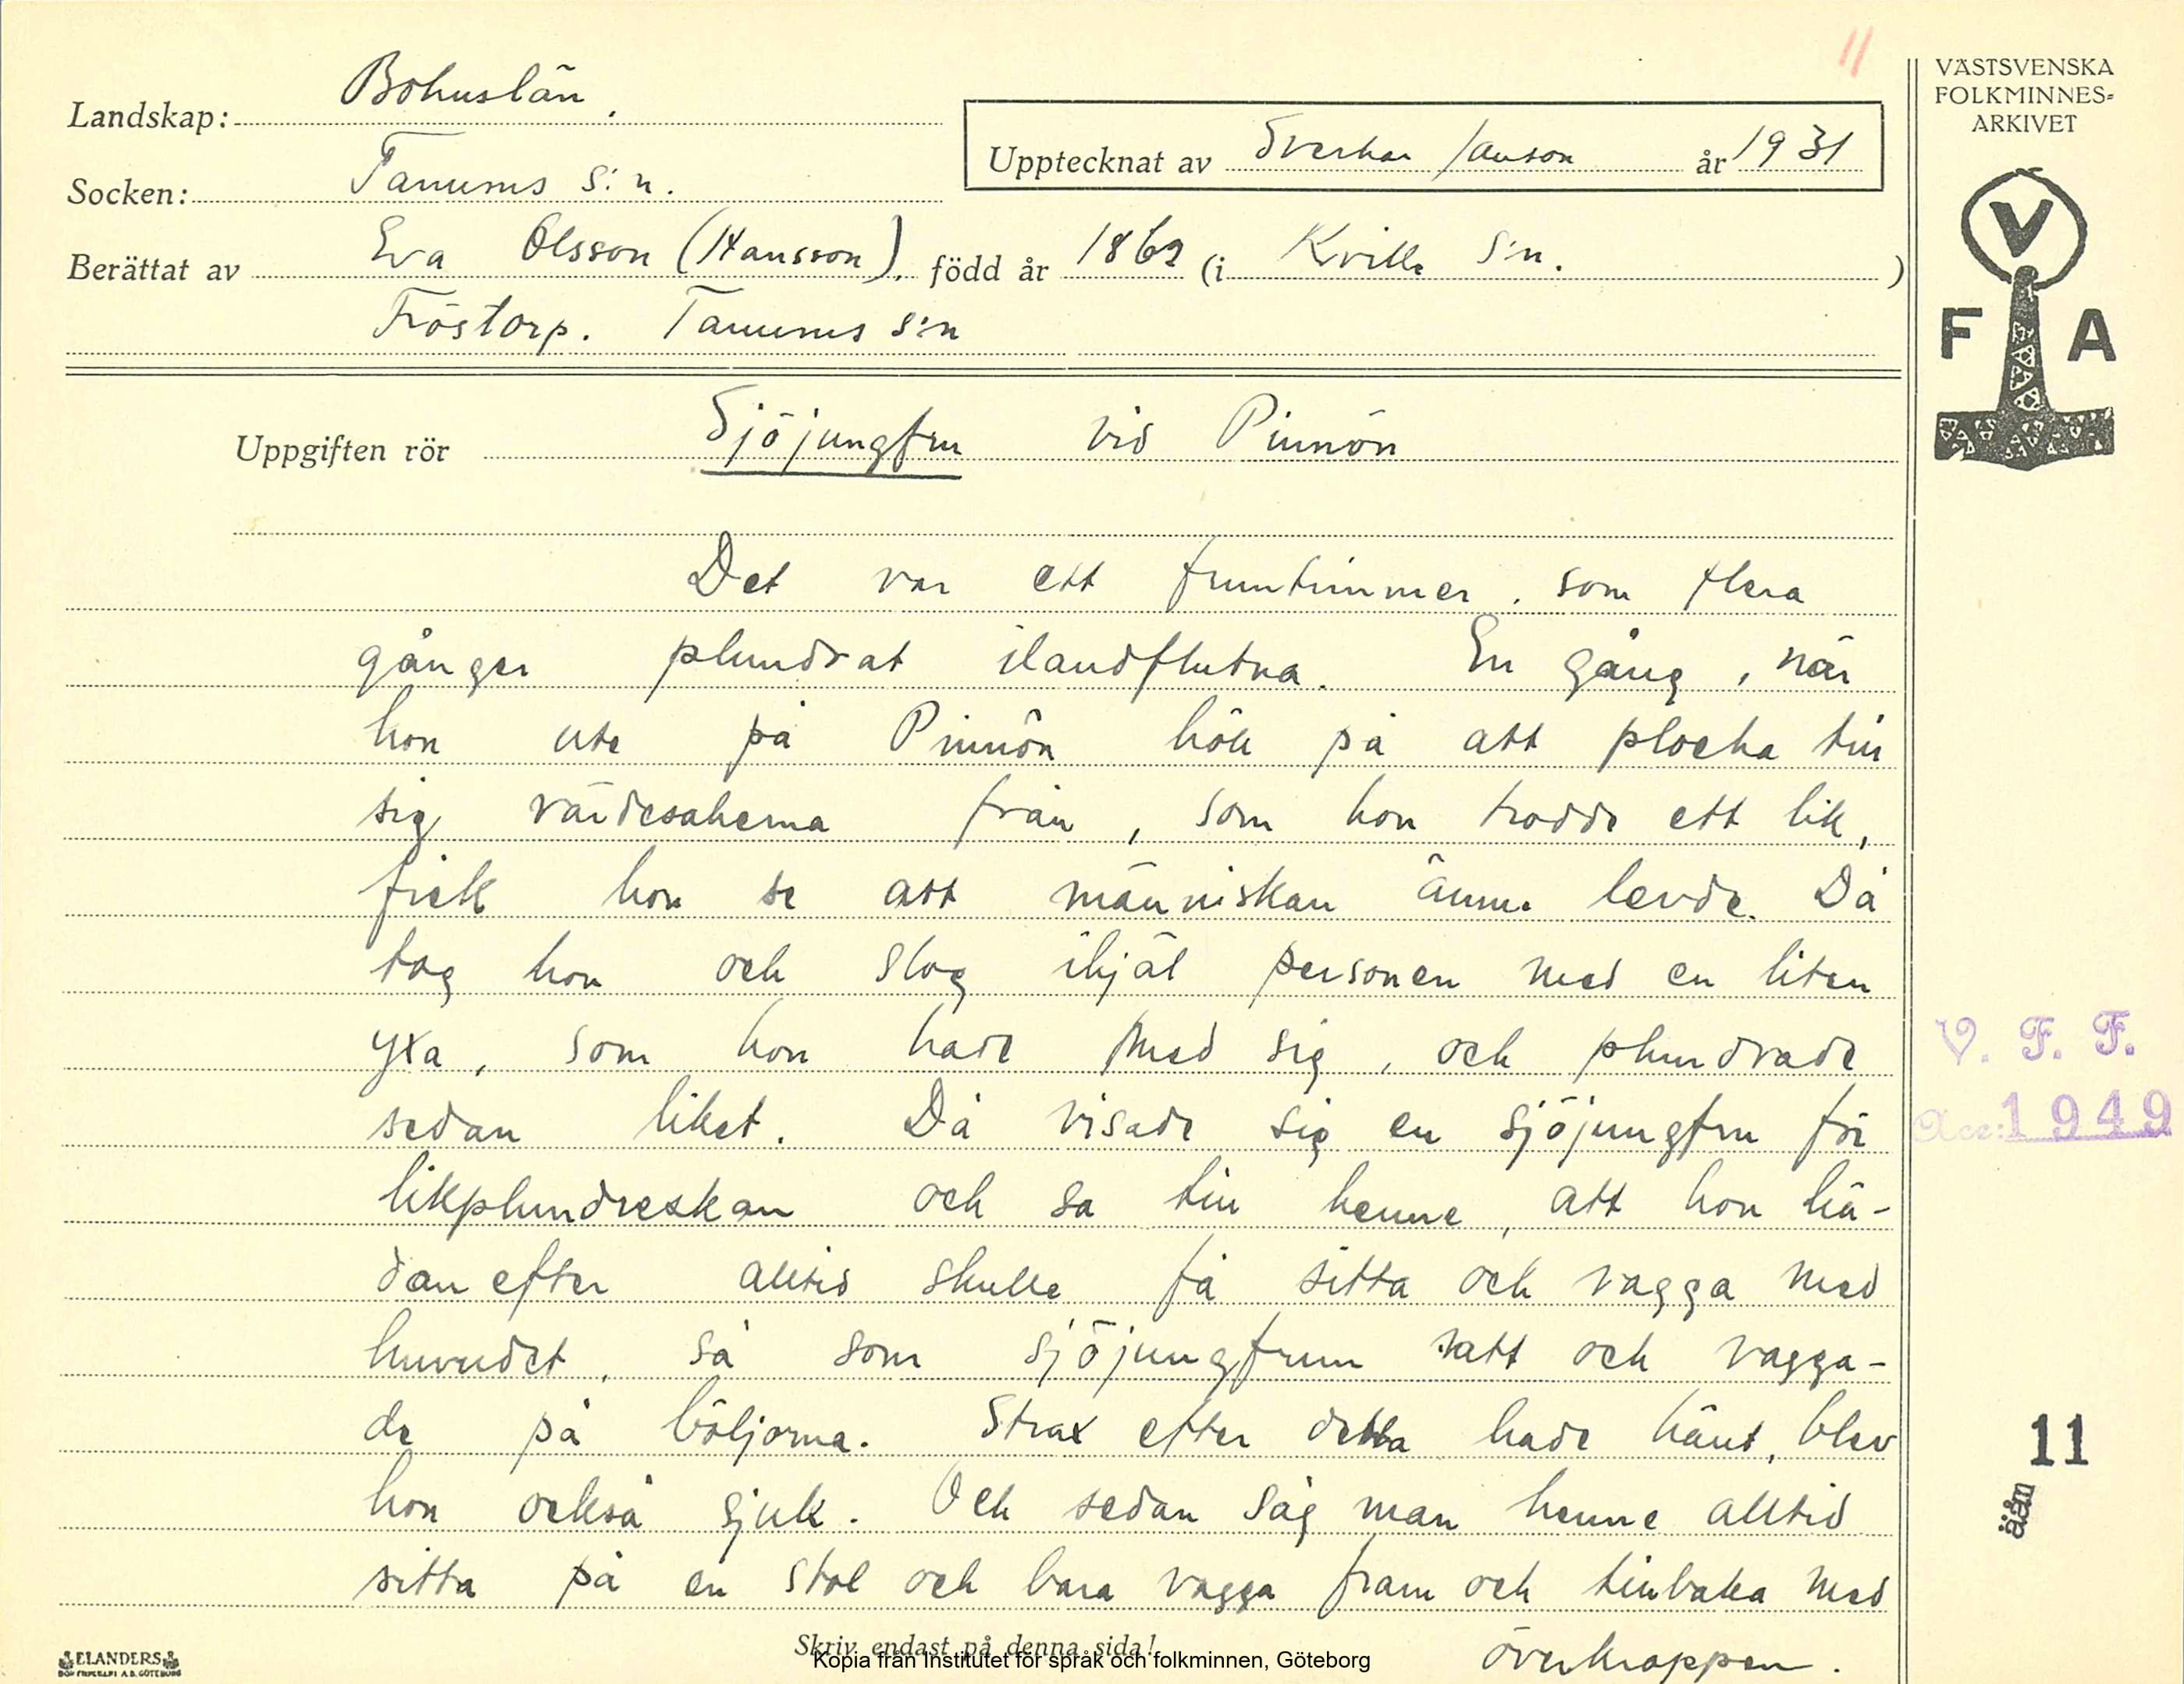 11
VÄSTSVENSKA
FOLKMINNES=
ARKIVET
Landskap: Bohuslän.
Upptecknat av Sverker Janson år 1931
Socken: Tanums s:n.
Berättat av Eva Olsson (Hansson). född år 1862 (i Kville s:n. )
Fröstorp. Tanums s:n
V
F A
Uppgiften rör Sjöjungfru vid Pinnön
Det var ett fruntimmer, som flera
gånger plundrat ilandflutna. En gång, när
hon ute på Pinnön höll på att plocka till
sig värdesakerna från, som hon trodde ett lik,
fick hon se att människan ännu levde. Då
tog hon och slog ihjäl personen med en liten
yxa, som hon hade med sig, och plundrade
sedan liket. Då visade sig en sjöjungfru för
likplundreskan och sa till henne, att hon hä-
dan efter alltid skulle få sitta och vagga med
huvudet, så som sjöjungfrun satt och vagga-
de på böljorna. Strax efter detta hade hänt, blev
hon också sjuk. Och sedan såg man henne alltid
sitta på en stol och bara vagga fram och tillbaka med
överkroppen.
V. F. F.
Acc: 1949
11
ääm
Skriv endast på denna sida!
Kopia från Institutet för språk och folkminnen, Göteborg
ELANDERS